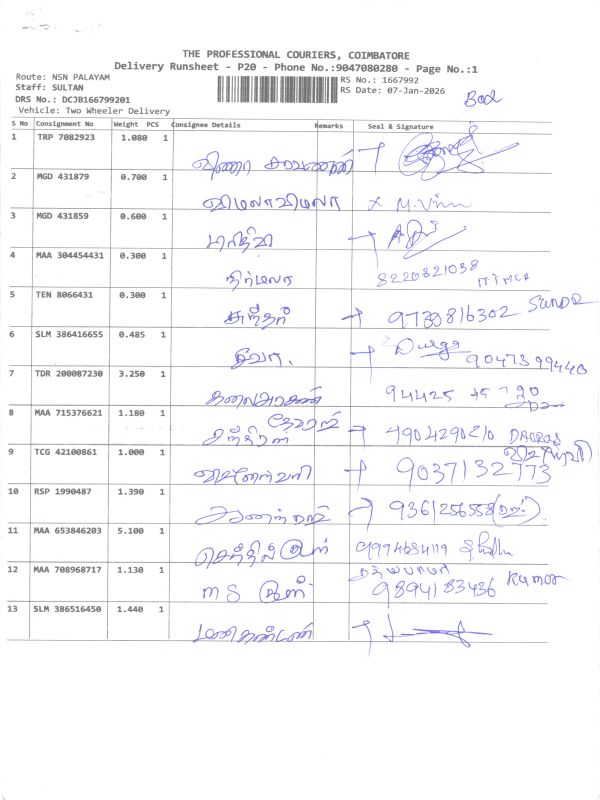 THE PROFESSIONAL COURIERS, COIMBATORE
Delivery Runsheet - P20 - Phone No.:9047080280 - Page No.:1
Route: NSN PALAYAM
Staff: SULTAN
DRS No.: DCJB166799201
Vehicle: Two Wheeler Delivery
RS No.: 1667992
RS Date: 07-Jan-2026
S No Consignment No Weight PCS Consignee Details Remarks Seal & Signature
1 TRP 7082923 1.080 1
2 MGD 431879 0.700 1
விமலாவிமலா
3 MGD 431859 0.600 1
4 MAA 304454431 0.300 1
நிர்மலா 8220821038
5 TEN 8066431 0.300 1
சுந்தர் 9730816302
6 SLM 386416655 0.485 1
Durga 9047399440
7 TDR 200087230 3.250 1
கலைஅரசன் 94425
8 MAA 715376621 1.180 1
9 TCG 42100861 1.000 1
9037132773
10 RSP 1990487 1.390 1
9361256558
11 MAA 653846203 5.100 1
செந்தில்குமார் 9994684119
12 MAA 708968717 1.130 1
M S 9894183436 Kumar
13 SLM 386516450 1.440 1
மணிகண்டன்